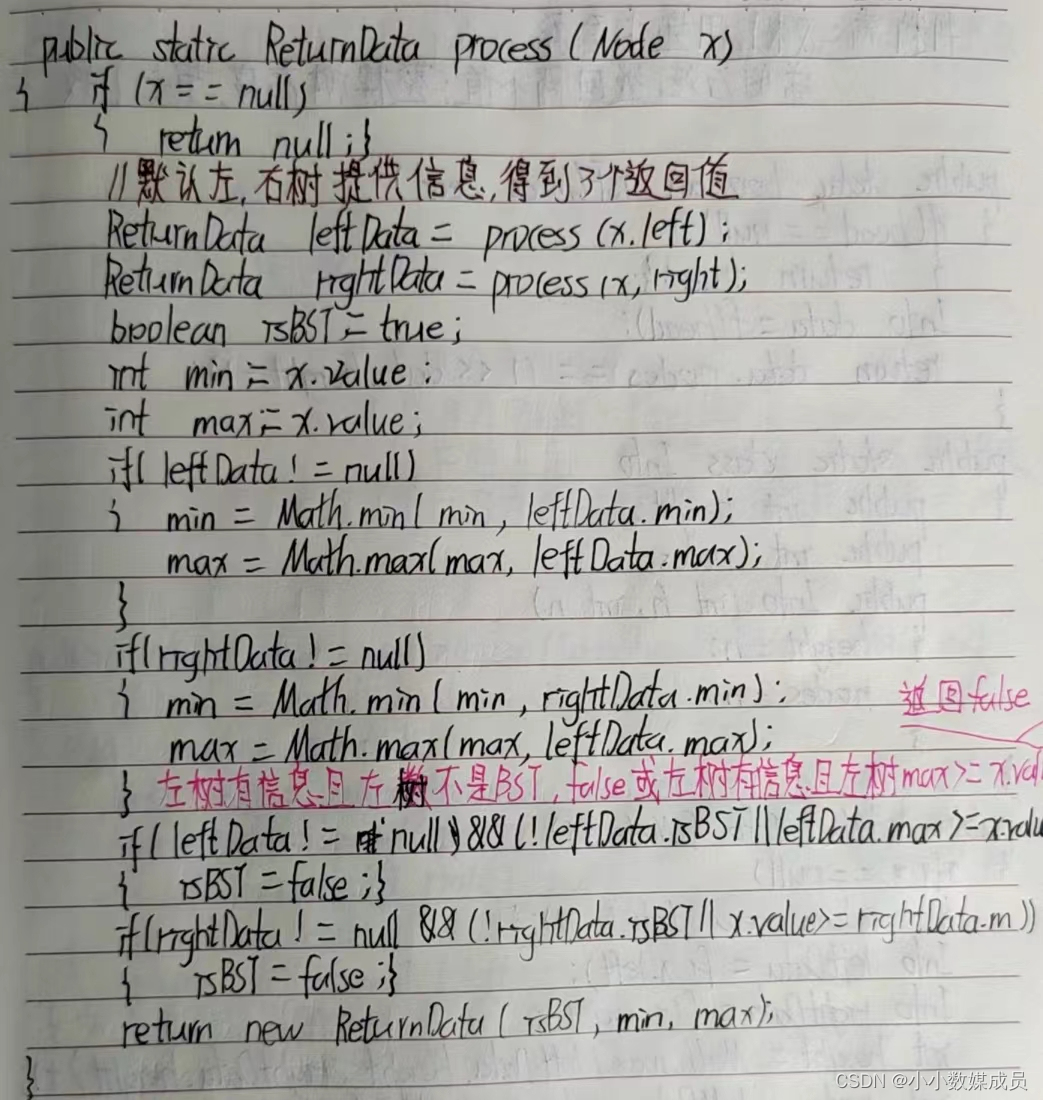 public static ReturnData process (Node x)
{ if (x == null)
{ return null;}
//默认左,右树提供信息,得到3个返回值
ReturnData leftData = process (x.left);
ReturnData rightData = process (x, right);
boolean isBST = true;
int min = x.value;
int max = x.value;
if( leftData != null)
{ min = Math.min( min, leftData.min);
max = Math.max(max, leftData.max);
}
if(rightData != null)
{ min = Math.min( min, rightData.min);
返回false
max = Math.max(max, leftData.max);
} 左树有信息且左树不是BST, false或左树有信息且左树max >= x.val
if( leftData != null) && (! leftData.isBST || leftData.max >= x.valu
{ isBST = false;}
if(rightData != null && (!rightData.isBST || x.value >= rightData.m))
{ isBST = false;}
return new ReturnData ( isBST, min, max);
}
CSDN @小小数媒成员